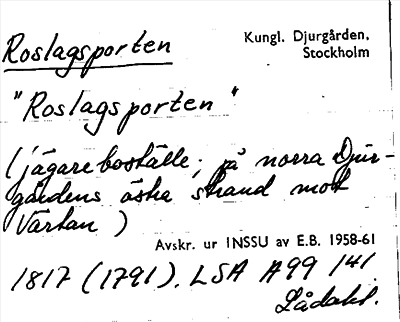 Roslagsporten
Kungl. Djurgården,
Stockholm
"Roslagsporten"
(jägareboställe; på norra Djur-
gårdens östra strand mot
Värtan)
Avskr. ur INSSU av E.B. 1958-61
1817 (1791). LSA A99 141
Lådakt.